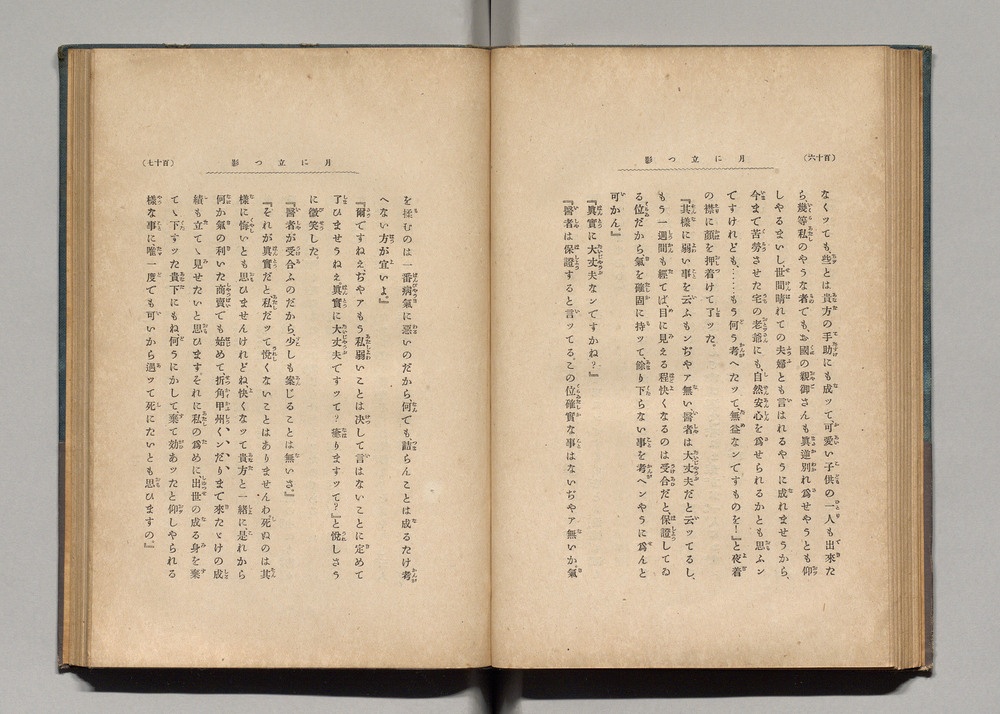 (百十六)
月に立つ影
なくッても、些とは貴方の手助にも成ッて、可愛い子供の一人も出來た
ら、幾等私のやうな者でも、お國の親御さんも眞逆別れ爲せやうとも仰
しやるまいし、世間晴れての夫婦とも言はれるやうに成れませうから、
今まで苦勞させた宅の老爺にも、自然安心を爲せられるかとも思ふン
ですけれども、……もう何う考へたッて無益なンですものを!』と夜着
の襟に顏を押着けて了ッた。
『其樣に弱い事を云ふもンぢやア無い、醫者は大丈夫だと云ッてるし、
もう一週間も經てば、目に見える程快くなるのは受合だと、保證してゐ
る位だから、氣を確固に持ッて、餘り下らない事を考へンやうに爲んと
可かん。』
『眞實に大丈夫なンですかね?』
『醫者は保證すると言ッてる。この位確實な事はないぢやア無いか、氣
(百十七)
月に立つ影
を揉むのは一番病氣に惡いのだから、何でも、詰らんことは成るだけ考
へない方が宜いよ。』
『爾ですねえ、ぢやアもう私弱いことは決して言はないことに定めて
了ひませうねえ、眞實に大丈夫ですッて?癒りますッて?』と悅しさう
に微笑した。
『醫者が受合ふのだから、少しも案じることは無いさ。』
『それが眞實だと、私だッて悅くないことはありませんわ、死ぬのは其
樣に悔いとも思ひませんけれどね、快くなッて貴方と一緒に是れから
何か氣の利いた商賣でも始めて、折角甲州くンだりまで來たゞけの成
績も立てゝ見せたいと思ひます。それに私の爲めに、出世の成る身を棄
てゝ下すッた貴下にもね、何うにかして棄て効あッたと仰しやられる
樣な事に、唯一度でも可いから遇ッて死にたいとも思ひますの。』